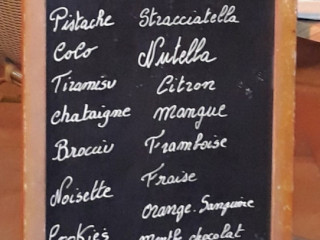 Pistache Stracciatella
Coco Nutella
Tiramisu Citron
chataigne mangue
Brocciu Framboise
Noisette Fraise
orange. Sanguine
Cookies menthe chocolat